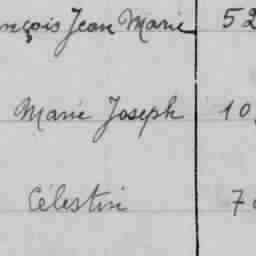 nçois Jean Marie 52
Marie Joseph 10
Célestin 7